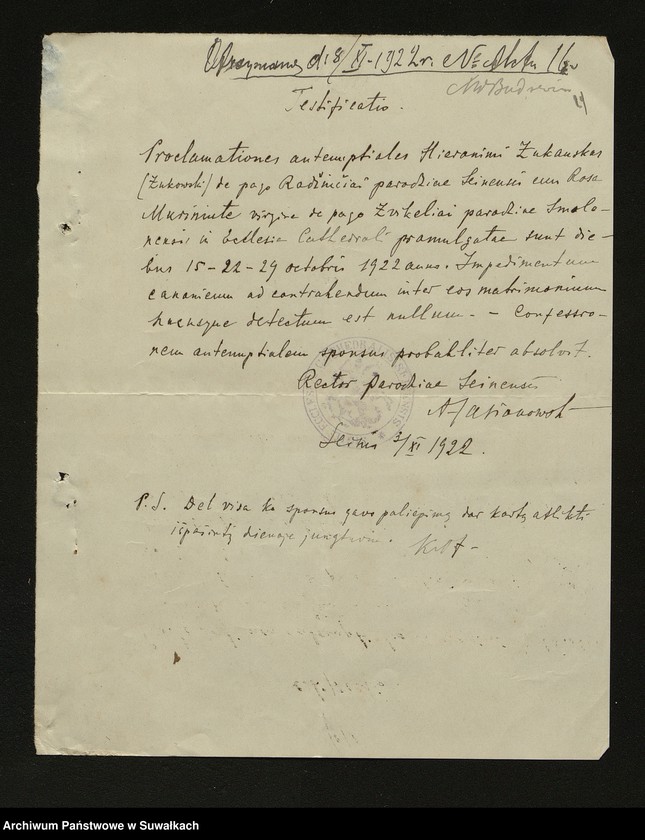 Otrzymano d. 8/XI-1922 r. № Aktu 16
Testificatio.
Proclamationes antenuptiales Hieronimi Żukauskas
(Żukowski) de pago Radžiučiai paroechiae Seinensis cum Rosa
virgine de pago Żvikeliai paroechiae Smolo-
nensis in Ecclesia Cathedrali promulgatae sunt die-
bus 15 - 22 - 29 octobris 1922 anno. Impedimentum
canonicum ad contrahendum inter eos matrimonium
hucusque detectum est nullum. - Confessio-
nem antenuptialem sponsus probabiliter absolvit.
Rector Paroechiae Seinensis
3/XI 1922.
P.S. Del viso ko sponsus gavo paliepimą dar kartą atlikti
išpažintį dienoje jungtuvių.
Archiwum Państwowe w Suwałkach